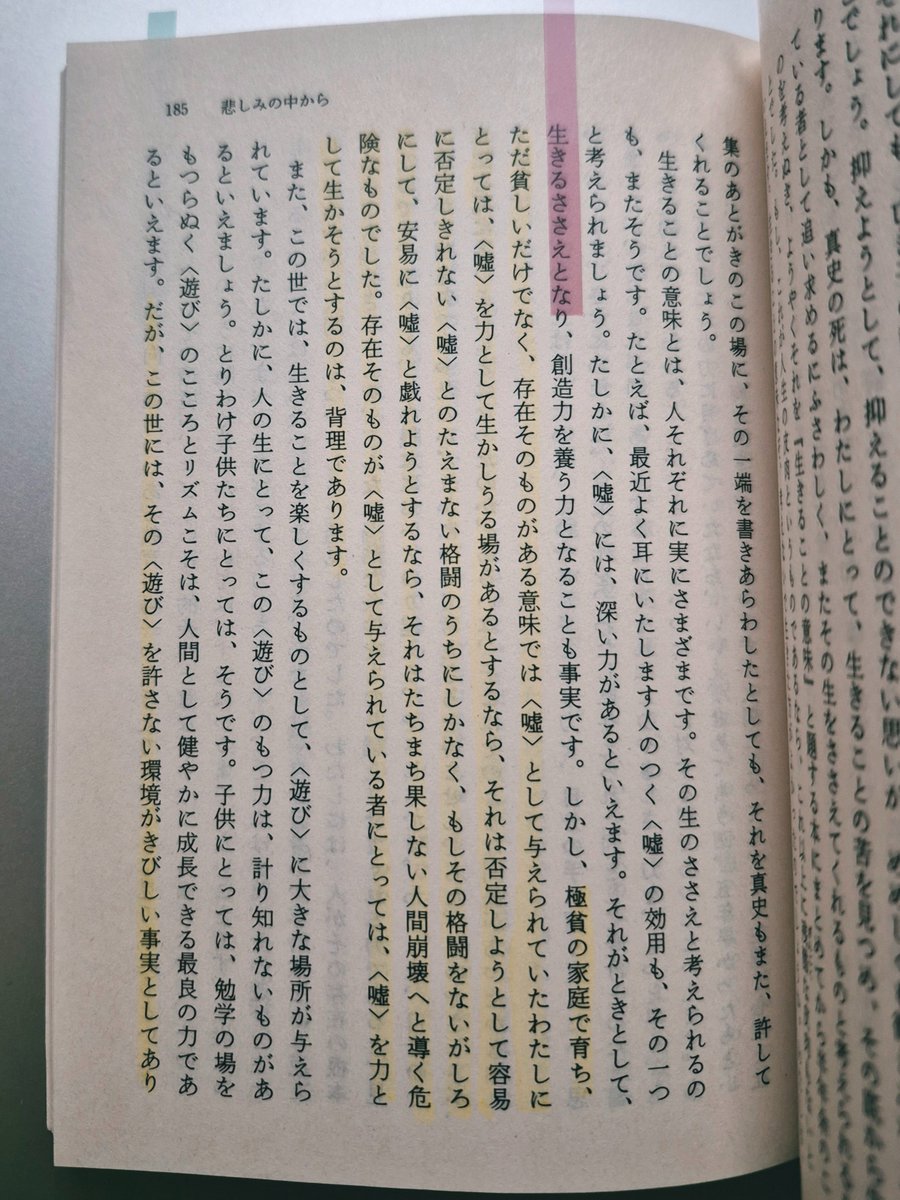 それにしても、
でしょう。抑えようとして、抑えることのできない思いが、
ります。しかも、真史の死は、わたしにとって、生きることの苦を見つめ、その
ている者として追い求めるにふさわしく、またその生をささえてくれるものと考えられ
185 悲しみの中から
集のあとがきのこの場に、その一端を書きあらわしたとしても、それを真史もまた、許して
くれることでしょう。
生きることの意味とは、人それぞれに実にさまざまです。その生のささえと考えられるの
も、またそうです。たとえば、最近よく耳にいたします人のつく〈嘘〉の効用も、その一つ
と考えられましょう。たしかに、〈嘘〉には、深い力があるといえます。それがときとして、
生きるささえとなり、創造力を養う力となることも事実です。しかし、極貧の家庭で育ち、
ただ貧しいだけでなく、存在そのものがある意味では〈嘘〉として与えられていたわたしに
とっては、〈嘘〉を力として生かしうる場があるとするなら、それは否定しようとして容易
に否定しきれない〈嘘〉とのたえまない格闘のうちにしかなく、もしその格闘をないがしろ
にして、安易に〈嘘〉と戯れようとするなら、それはたちまち果しない人間崩壊へと導く危
険なものでした。存在そのものが〈嘘〉として与えられている者にとっては、〈嘘〉を力と
して生かそうとするのは、背理であります。
また、この世では、生きることを楽しくするものとして、〈遊び〉に大きな場所が与えら
れています。たしかに、人の生にとって、この〈遊び〉のもつ力は、計り知れないものがあ
るといえましょう。とりわけ子供たちにとっては、そうです。子供にとっては、勉学の場を
もつらぬく〈遊び〉のこころとリズムこそは、人間として健やかに成長できる最良の力であ
るといえます。だが、この世には、その〈遊び〉を許さない環境がきびしい事実としてあり